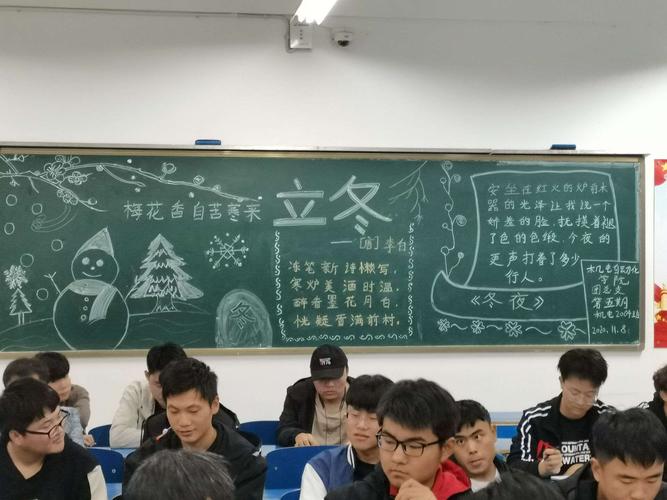 梅花香自苦寒来
立冬
——[唐]李白
冻笔新诗懒写,
寒炉美酒时温。
醉看墨花月白,
恍疑雪满前村。
冬
安坐在红火的炉前木
器的光泽让我说一个
娇羞的脸,抚摸着褪
了色的色缎,今夜的
更声打着了多少
行人。
《冬夜》
机电自动化
学院
团总支
第五期
2020.11.8
MOUNTAIN
WATER